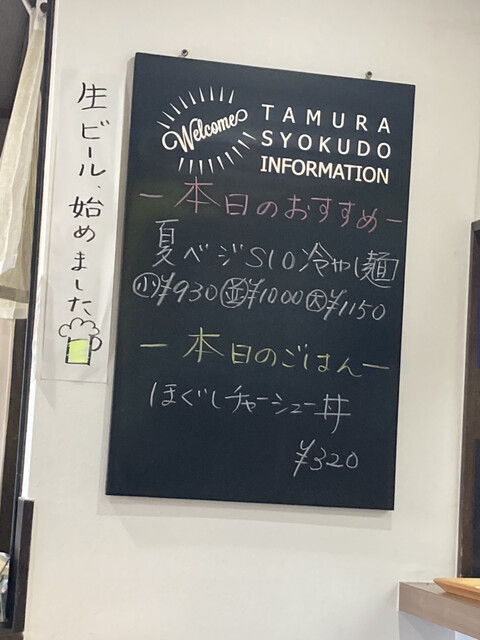 生ビール、始めました
Welcome
TAMURA
SYOKUDO
INFORMATION
－本日のおすすめ－
夏ベジSIO冷やし麺
小¥930 並¥1000 大¥1150
－本日のごはん－
ほぐしチャーシュー丼
¥320